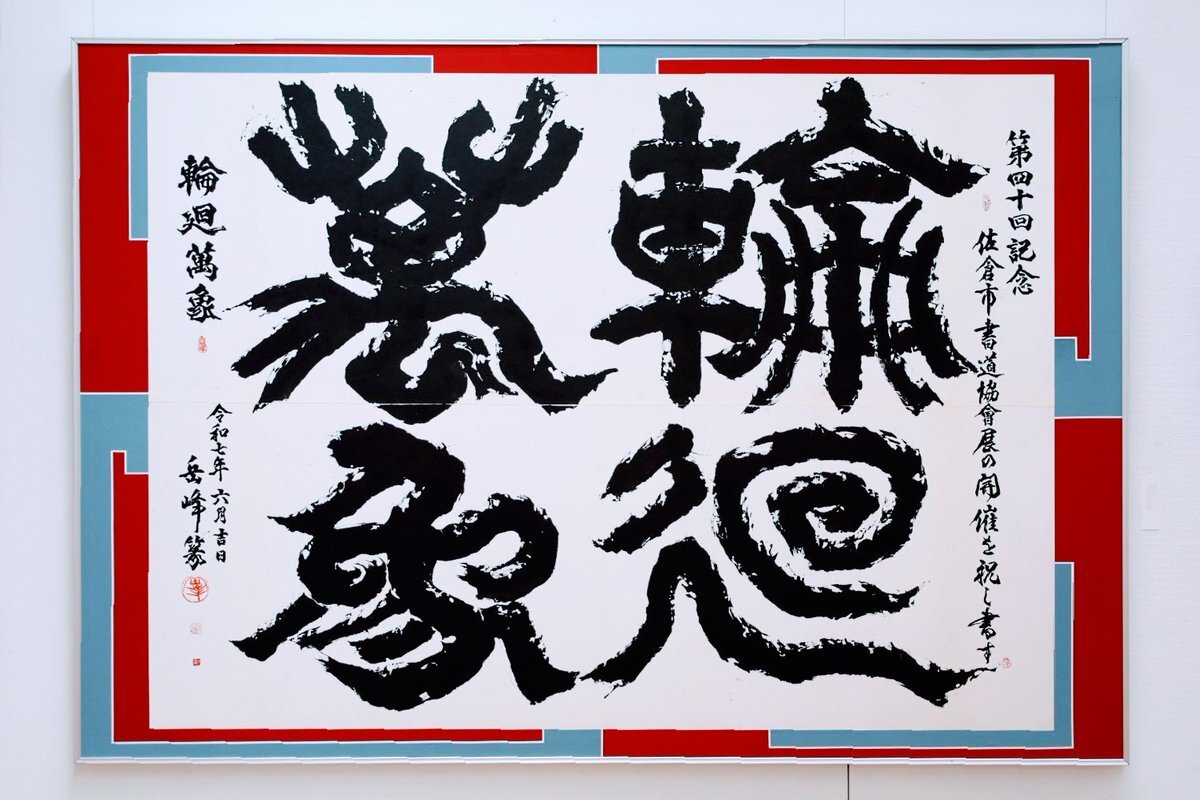 第四十回記念
佐倉市書道協會展の開催を祝し書す
輪廻
萬象
輪廻萬象
令和七年六月吉日
岳峰篆